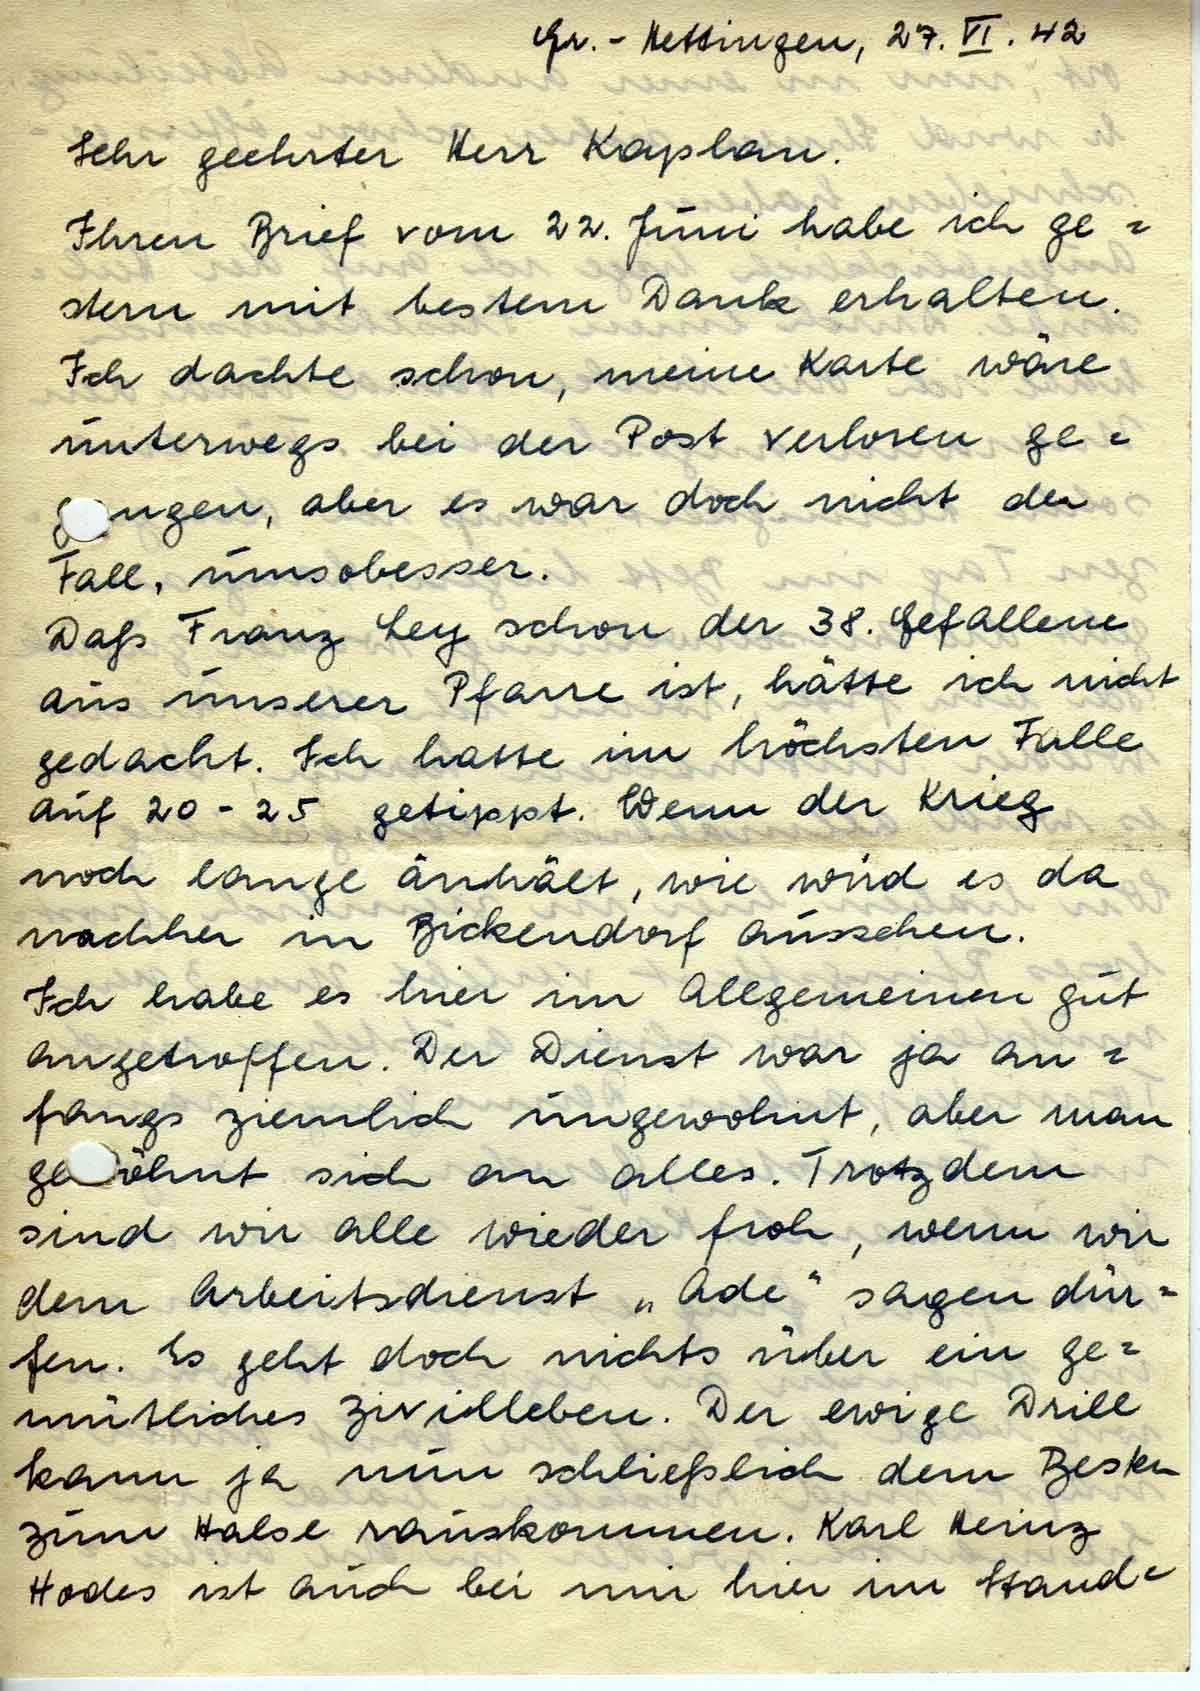 Gr.-Hettingen, 27. VI. 42
Sehr geehrter Herr Kaplan.
Ihren Brief vom 22. Juni habe ich ge=
stern mit bestem Dank erhalten.
Ich dachte schon, meine Karte wäre
unterwegs bei der Post verloren ge=
gangen, aber es war doch nicht der
Fall, umsobesser.
Daß Franz Ley schon der 38. Gefallene
aus unserer Pfarre ist, hätte ich nicht
gedacht. Ich hatte im höchsten Falle
auf 20-25 getippt. Wenn der Krieg
noch lange änhält, wie wird es da
nachher in Bickendorf aussehen.
Ich habe es hier im Allgemeinen gut
angetroffen. Der Dienst war ja an=
fangs ziemlich ungewohnt, aber man
gewöhnt sich an alles. Trotzdem
sind wir alle wieder froh, wenn wir
dem Arbeitsdienst „Ade“ sagen dür=
fen. Es geht doch nichts über ein ge=
mütliches Zivilleben. Der ewige Drill
kann ja nun schließlich dem Besten
zum Halse rauskommen. Karl Heinz
Hodes ist auch bei mir hier im Stand=